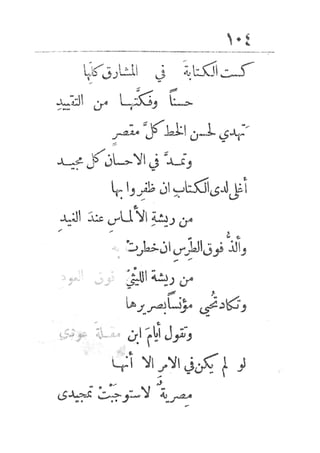 ١٠٤
كست الكتابة في المشارق كلها
حسناً وفكَّتها من التقييد
تهدي لحسن الخط كلَّ مقصرٍ
وتمدَّ في الاحسان كل مجيد
أغلى لدى الكتاب ان ظفروا بها
من ريشة الألماس عند الغيد
وألذُّ فوق الطرس ان خطرت به
من ريشة الليثيِّ فوق العود
وتكاد تحيي مؤنساً بصريرها
وتقول أيام ابن مقلة عودي
لو لم يكن في الامر الا أنها
مصريةٌ لاستوجبت تمجيدى